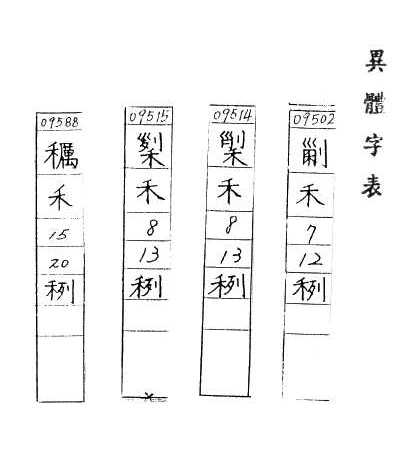 異體字表
09502
禾
7
12
䅀
09514
禾
8
13
䅀
09515
禾
8
13
䅀
09588
禾
15
20
䅀